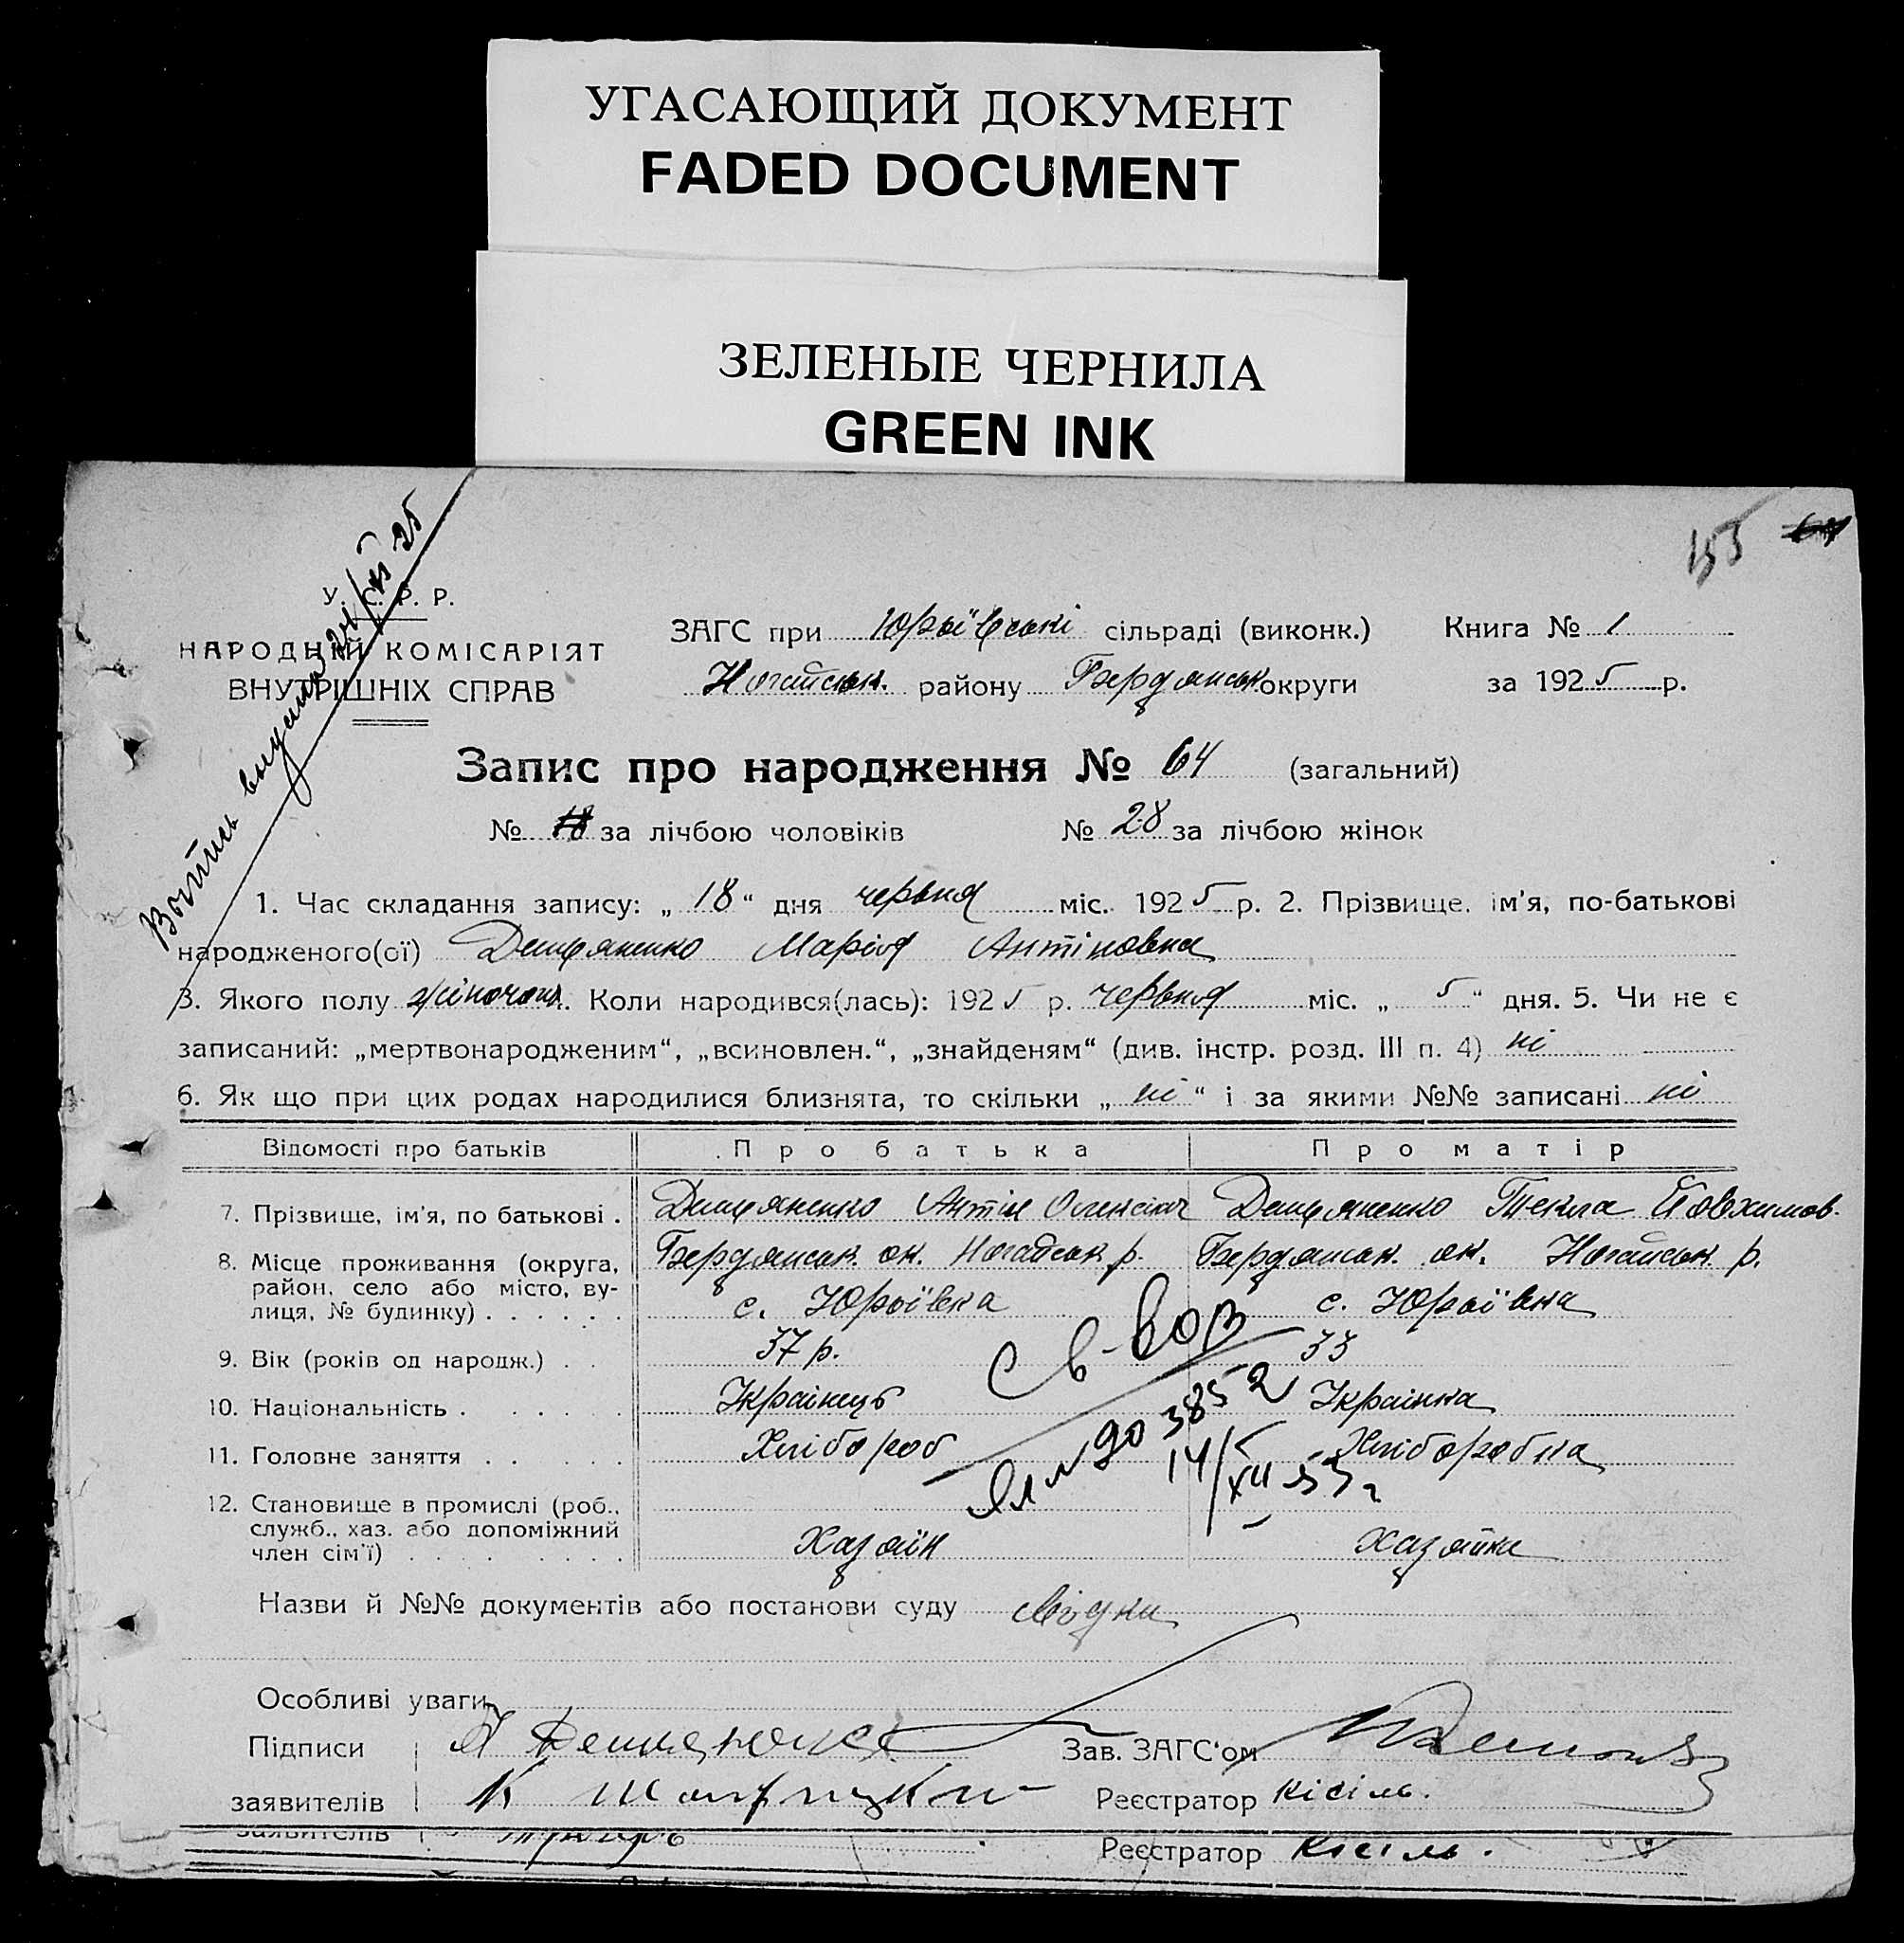 УГАСАЮЩИЙ ДОКУМЕНТ
FADED DOCUMENT
ЗЕЛЕНЫЕ ЧЕРНИЛА
GREEN INK
155 64
У. С. Р. Р.
НАРОДНІЙ КОМІСАРІЯТ
ВНУТРІШНІХ СПРАВ
ЗАГС при Юрьївські сільраді (виконк.) Книга № 1
Ногайськ. району Бердянськ округи за 1925 р.
Запис про народження № 64 (загальний)
№ 18 за лічбою чоловіків № 28 за лічбою жінок
1. Час складання запису: „ 18 “ дня червня міс. 1925 р. 2. Прізвище, ім’я, по-батькові
народженого(ої) Марія Антіповна
3. Якого полу жіночого. Коли народився(лась): 1925 р. червня міс. „ 5 “ дня. 5. Чи не є
записаний: „мертвонародженим“, „всиновлен.“, „знайденям“ (див. інстр. розд. III п. 4) ні
6. Як що при цих родах народилися близнята, то скільки „ ні “ і за якими №№ записані ні
Відомості про батьків Про батька Про матір
7. Прізвище, ім’я, по батькові . Антіп Олексієвич Текла Йовхимов.
8. Місце проживання (округа, район, село або місто, вулиця, № будинку) . . . . . . Бердянськ. ок. Ногайськ р. Бердянськ. ок. Ногайськ. р.
с. Юрьївка с. Юрьївка
9. Вік (років од народж.) . . 37 р. 33
10. Національність . . . . . . Українець Українка
11. Головне заняття . . . . . Хлібороб Хліборобка
12. Становище в промислі (роб., служб., хаз. або допоміжний член сім’ї) . . . . . . . . Хазяїн Хазяйка
Св-во
ЯЛ № 903852
14/XII 53 г
Назви й №№ документів або постанови суду Свідки
Особливі уваги
Підписи Зав. ЗАГС‘ом
заявителів Реєстратор Кісіль.
заявителів Реєстратор Кісіль.